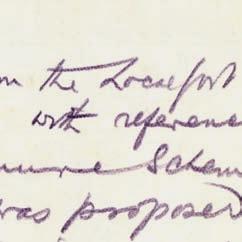 on the Local Govt
with referen
Scheme
was proposed